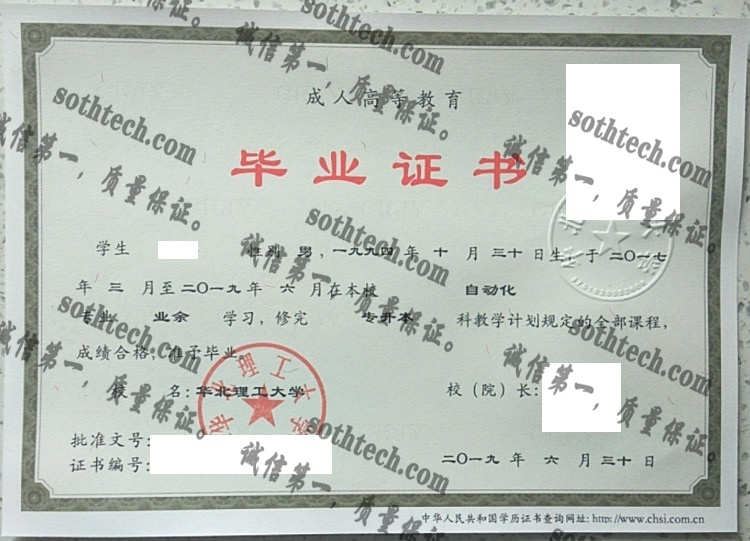 成人高等教育
毕业证书
学生 性别 男，一九九四年 十 月 三十 日生，于 二〇一七
年 三 月至 二〇一九 年 六 月在本校 自动化
专业 业余 学习，修完 专升本 科教学计划规定的全部课程，
成绩合格，准予毕业。
校 名：华北理工大学
校（院）长：
批准文号：
证书编号：
二〇一九 年 六 月 三十 日
中华人民共和国学历证书查询网址：http://www.chsi.com.cn
华北理工大学
sothtech.com
诚信第一，质量保证。
sothtech.com
诚信第一，质量保证。
sothtech.com
诚信第一，质量保证。
sothtech.com
诚信第一，质量保证。
sothtech.com
诚信第一，质量保证。
sothtech.com
诚信第一，质量保证。
sothtech.com
诚信第一，质量保证。
sothtech.com
诚信第一，质量保证。